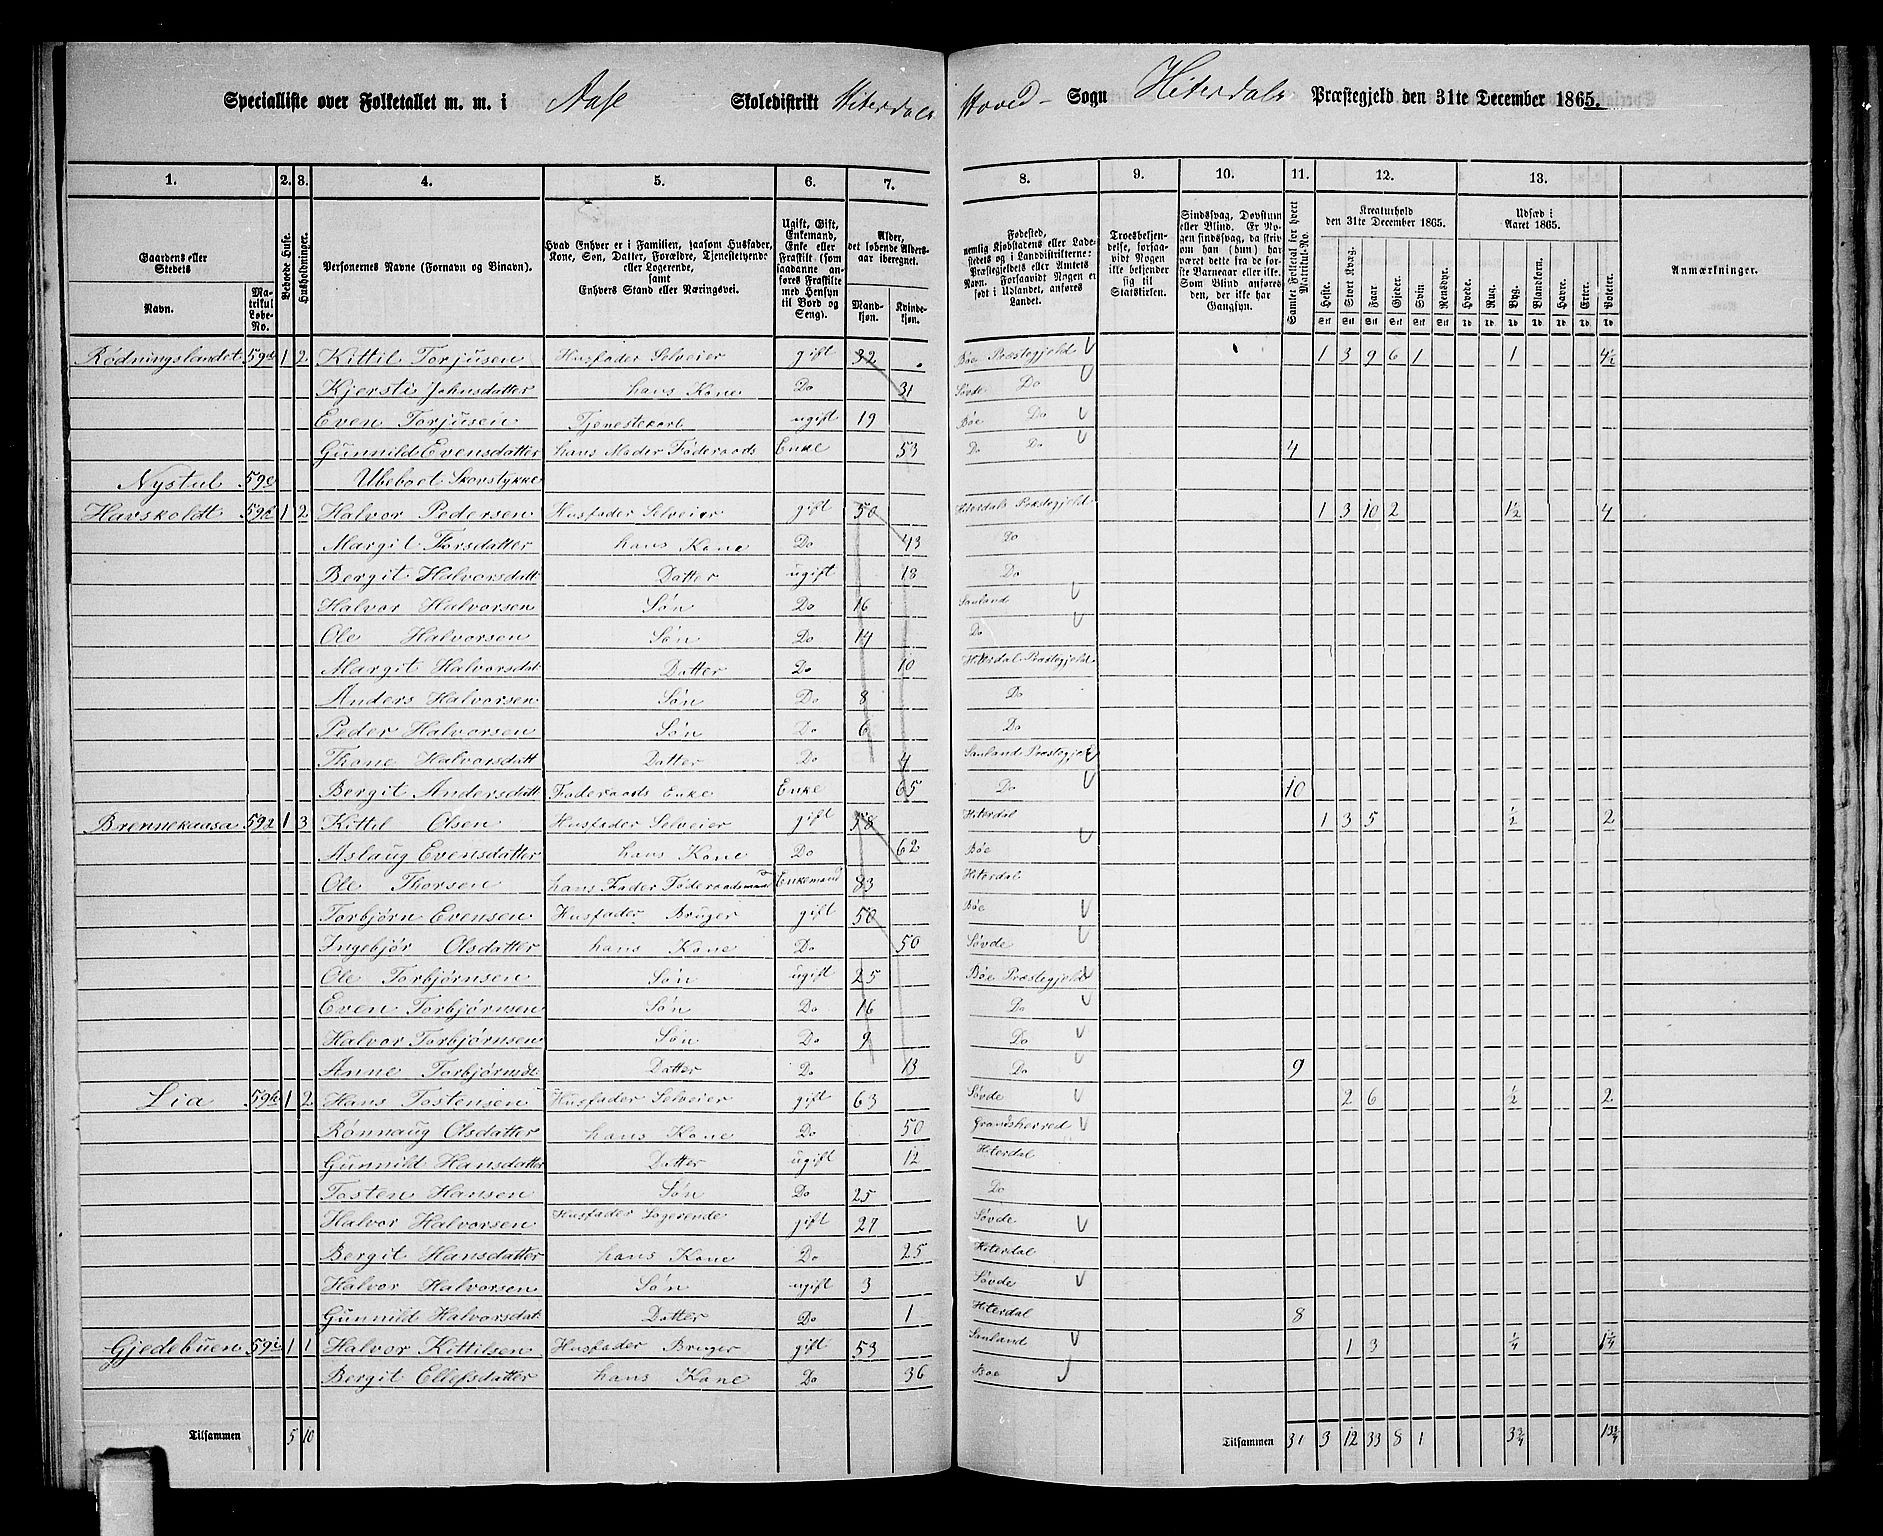 Specialliste over Folketallet m. m. i Aase Skoledistrikt Hiterdals Hoved- Sogn Hiterdals Præstegjeld den 31te December 1865.
1. 2. 3. 4. 5. 6. 7. 8. 9. 10. 11. 12. 13.
Gaardens eller Stedets
Navn. Matrikul Løbe-No.
Beboede Huse.
Husholdninger.
Personernes Navne (Fornavn og Binavn).
Hvad Enhver er i Familien, saasom Husfader, Kone, Søn, Datter, Forældre, Tjenestetyende eller Logerende, samt Enhvers Stand eller Næringsvei.
Ugift, Gift, Enkemand, Enke eller Fraskilt (som saadanne anføres Fraskilte med Hensyn til Bord og Seng).
Alder, det løbende Alders-aar iberegnet.
Mandkjøn. Kvindekjøn.
Fødested, nemlig Kjøbstadens eller Ladestedets og i Landdistrikterne: Præstegjeldets eller Amtets Navn. Forsaavidt Nogen er født i Udlandet, anføres Landet.
Troesbekjendelse, forsaavidt Nogen ikke bekjender sig til Statskirken.
Sindssvag, Døvstum eller Blind. Er Nogen sindssvag, da skrives han (hun) har været dette fra de første Barneaar eller ikke. Som Blind anføres den, der ikke har Gangsyn.
Samlet Folketal for hvert Matrikul-No.
Kreaturhold den 31te December 1865.
Heste. Stort Kvæg. Faar. Gjeder. Svin. Rensdyr.
Udsæd i Aaret 1865.
Hvede. Rug. Byg. Blandkorn. Havre. Erter. Poteter.
Anmærkninger.
Rødningslandet 59d 1 2 Kittil Torjusen Husfader Selveier gift 32 Bøe Præstegjeld 1 3 9 6 1 1 4½
Kjersti Johnsdatter hans Kone Do 31 Søvde Do
Even Torjusen Tjenestekarl ugift 19 Bøe Do
Gunnild Evensdatter hans Moder Føderaads Enke 53 Do Do 4
Nystul 59e Ubeboet Skovstykke
Havskoldt 59f 1 2 Halvor Pedersen Husfader Selveier gift 50 Hiterdals Præstegjeld 1 3 10 2 1½ 4
Margit Torsdatter hans Kone Do 43 Do
Bergit Halvorsdatt Datter ugift 18 Do
Halvor Halvorsen Søn Do 16 Sauland
Ole Halvorsen Søn Do 14 Do
Margit Halvorsdat Datter Do 10 Hiterdal Præstegjeld
Anders Halvorsen Søn Do 8 Do
Peder Halvorsen Søn Do 6 Do
Thone Halvorsdatt Datter Do 4 Sauland Præstegjeld
Bergit Andersdatt Føderaads Enke Enke 65 Do 10
Brennekaasa 59g 1 3 Kittil Olsen Husfader Selveier gift 58 Hiterdal 1 3 5 ½ 2
Aslaug Evensdatter hans Kone Do 62 Bøe
Ole Thorsen hans Fader Føderaadsmand Enkemand 83 Hiterdal
Torbjørn Evensen Husfader Bruger gift 50 Bøe
Ingebjør Olsdatter hans Kone Do 50 Søvde
Ole Torbjørnsen Søn ugift 25 Bøe Præstegjeld
Even Torbjørnsen Søn Do 16 Do
Halvor Torbjørnsen Søn Do 9 Do
Anne Torbjørnsdt Datter Do 13 Do 9
Lia 59h 1 2 Hans Tostensen Husfader Selveier gift 63 Søvde 2 6 ½ 2
Rønnaug Olsdatter hans Kone Do 50 Grandsherred
Gunnild Hansdatter Datter ugift 12 Hiterdal
Tosten Hansen Søn Do 25 Do
Halvor Halvorsen Husfader Logerende gift 27 Søvde
Bergit Hansdatter hans Kone Do 25 Hiterdal
Halvor Halvorsen Søn ugift 3 Søvde
Gunnild Halvorsdat Datter Do 1 Hiterdal 8
Gjedebuen 59i 1 1 Halvor Kittilsen Husfader Bruger gift 53 Sauland 1 3 ¼ 1¼
Bergit Ellefsdatter hans Kone Do 36 Bøe
Tilsammen 5 10 Tilsammen 31 3 12 33 8 1 3¾ 13¾